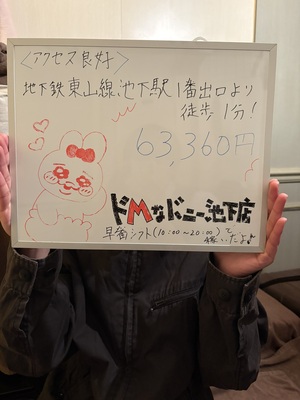 〈アクセス良好〉
地下鉄東山線池下駅1番出口より
徒歩1分!
63,360円
ドMなバニー池下店
早番シフト(10:00~20:00)で
稼いだよ♪